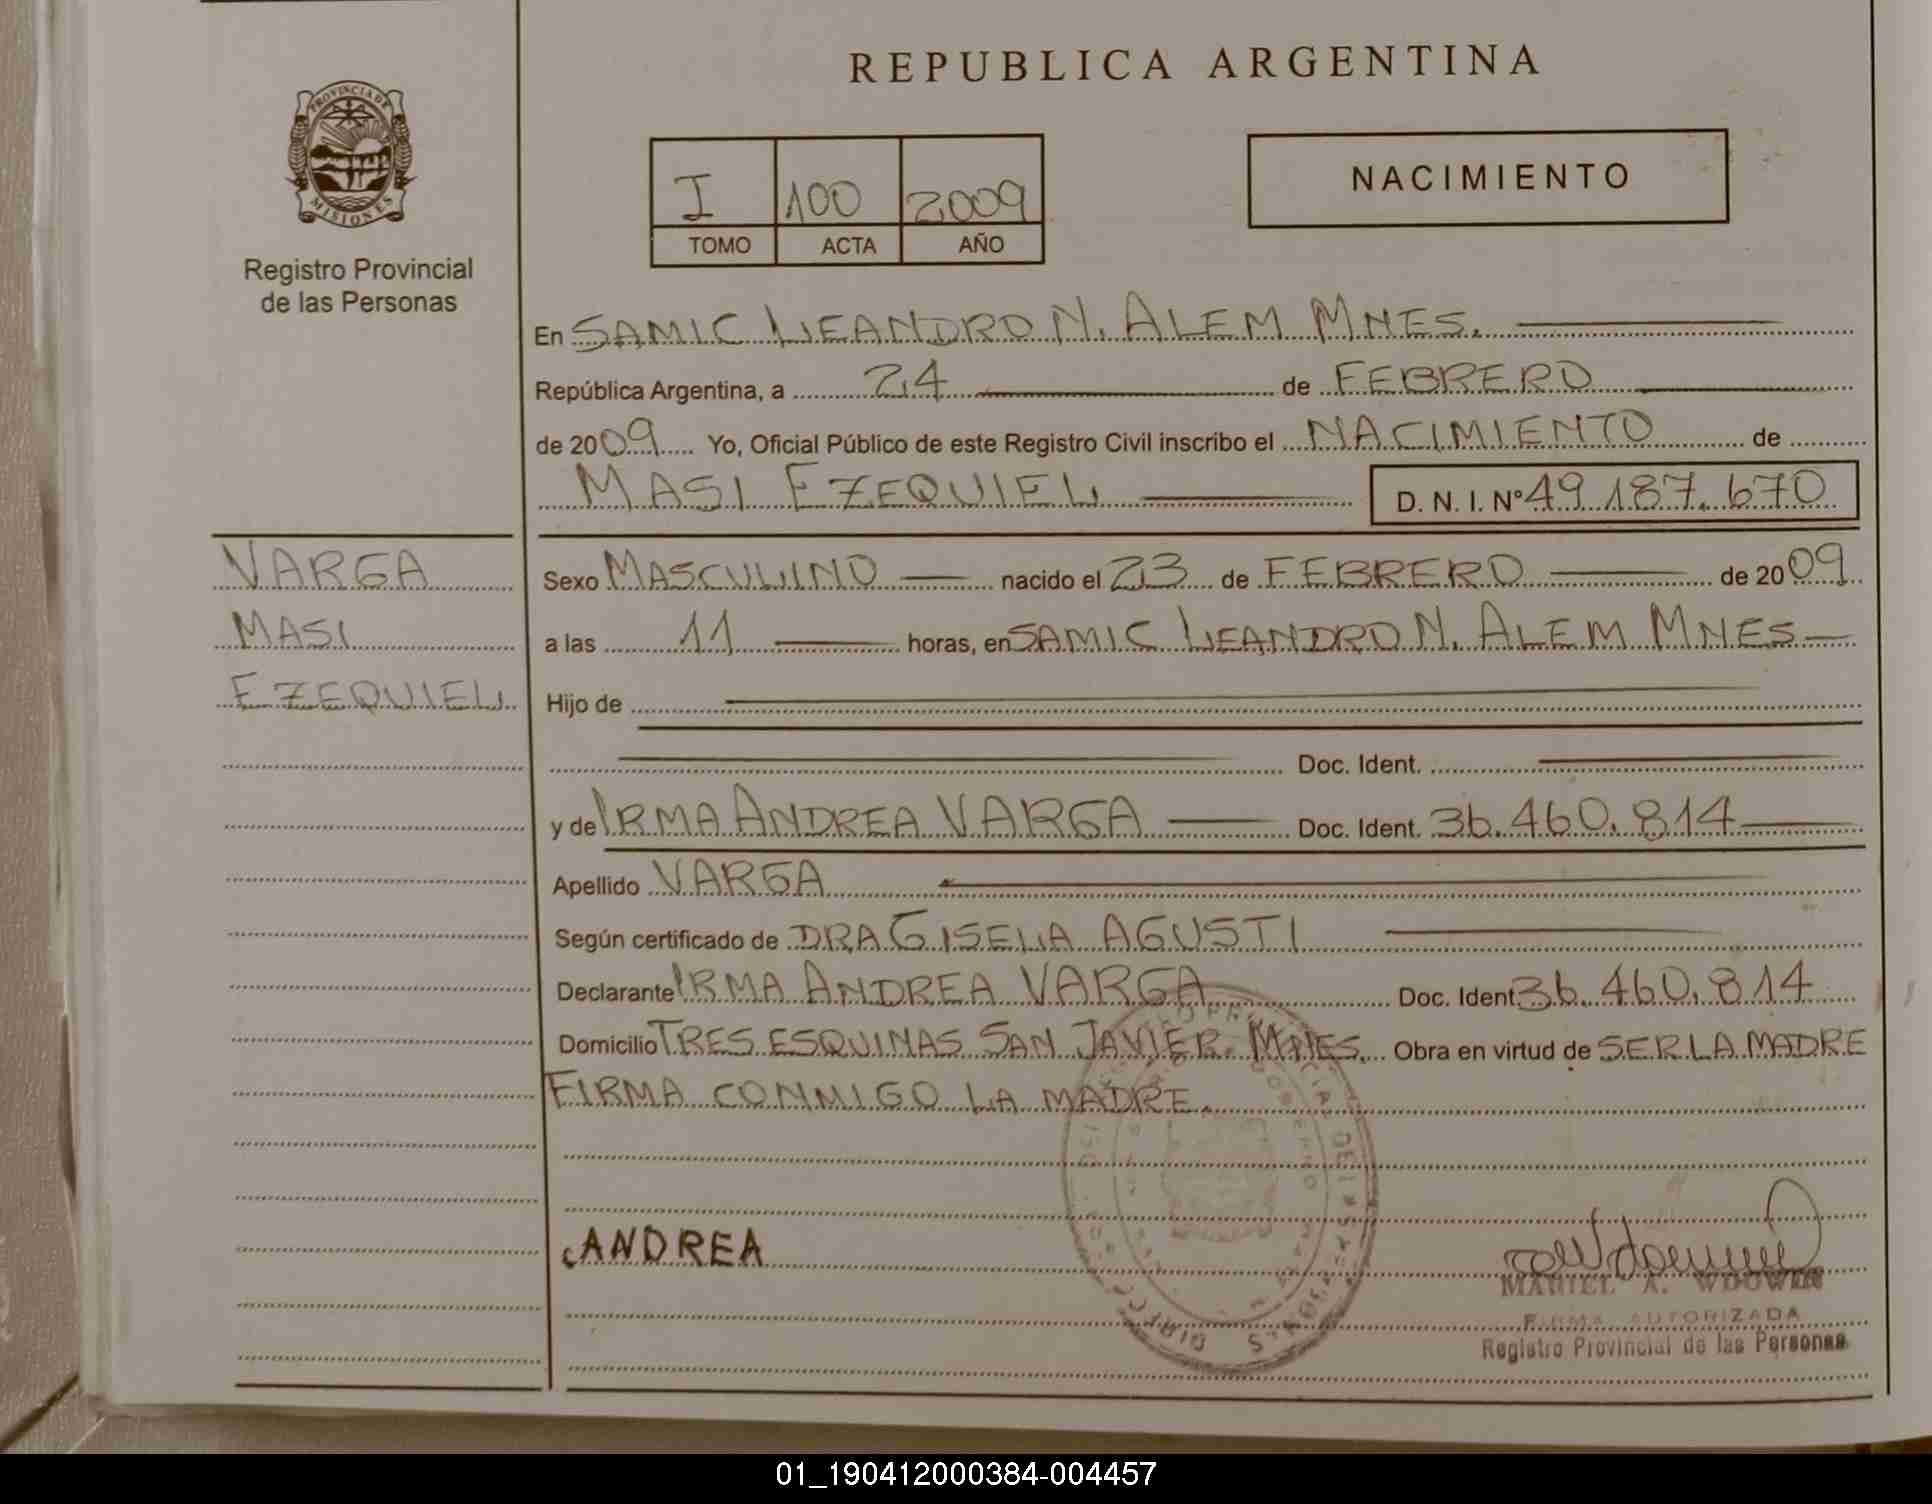 REPUBLICA ARGENTINA
PROVINCIA DE
MISIONES
Registro Provincial
de las Personas
I 100 2009
TOMO ACTA AÑO
NACIMIENTO
En SAMIC LEANDRO N. ALEM MNES.
República Argentina, a 24 de FEBRERO
de 2009 Yo, Oficial Público de este Registro Civil inscribo el NACIMIENTO de
MASI EZEQUIEL D. N. I. Nº 49.187.670
VARGA
MASI
EZEQUIEL
Sexo MASCULINO nacido el 23 de FEBRERO de 2009
a las 11 horas, en SAMIC LEANDRO N. ALEM MNES
Hijo de
Doc. Ident.
y de IRMA ANDREA VARGA Doc. Ident. 36.460.814
Apellido VARGA
Según certificado de DRA GISELA AGUSTI
Declarante IRMA ANDREA VARGA Doc. Ident 36.460.814
Domicilio TRES ESQUINAS SAN JAVIER. MNES. Obra en virtud de SER LA MADRE
FIRMA CONMIGO LA MADRE.
ANDREA
MARIEL A.
FIRMA AUTORIZADA
Registro Provincial de las Personas
01_190412000384-004457